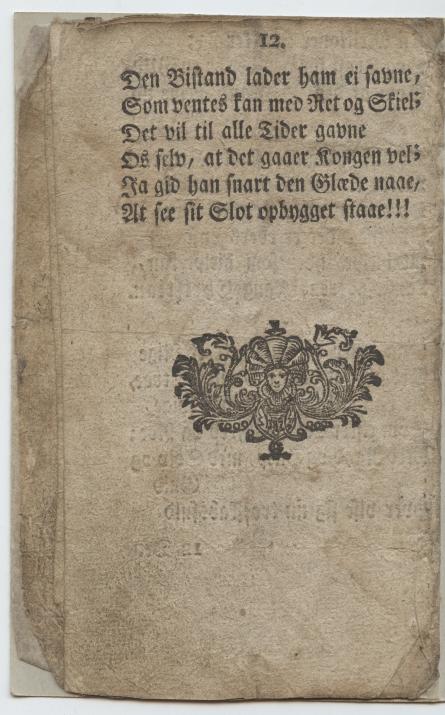 12.
Den Bistand lader ham ei savne,
Som ventes kan med Ret og Skiel;
Det vil til alle Tider gavne
Os selv, at det gaaer Kongen vel;
Ja gid han snart den Glæde naae,
At see sit Slot opbygget staae!!!